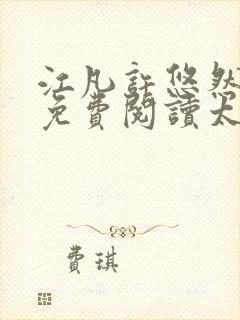 江凡許悠然
免費閱讀大
費琪